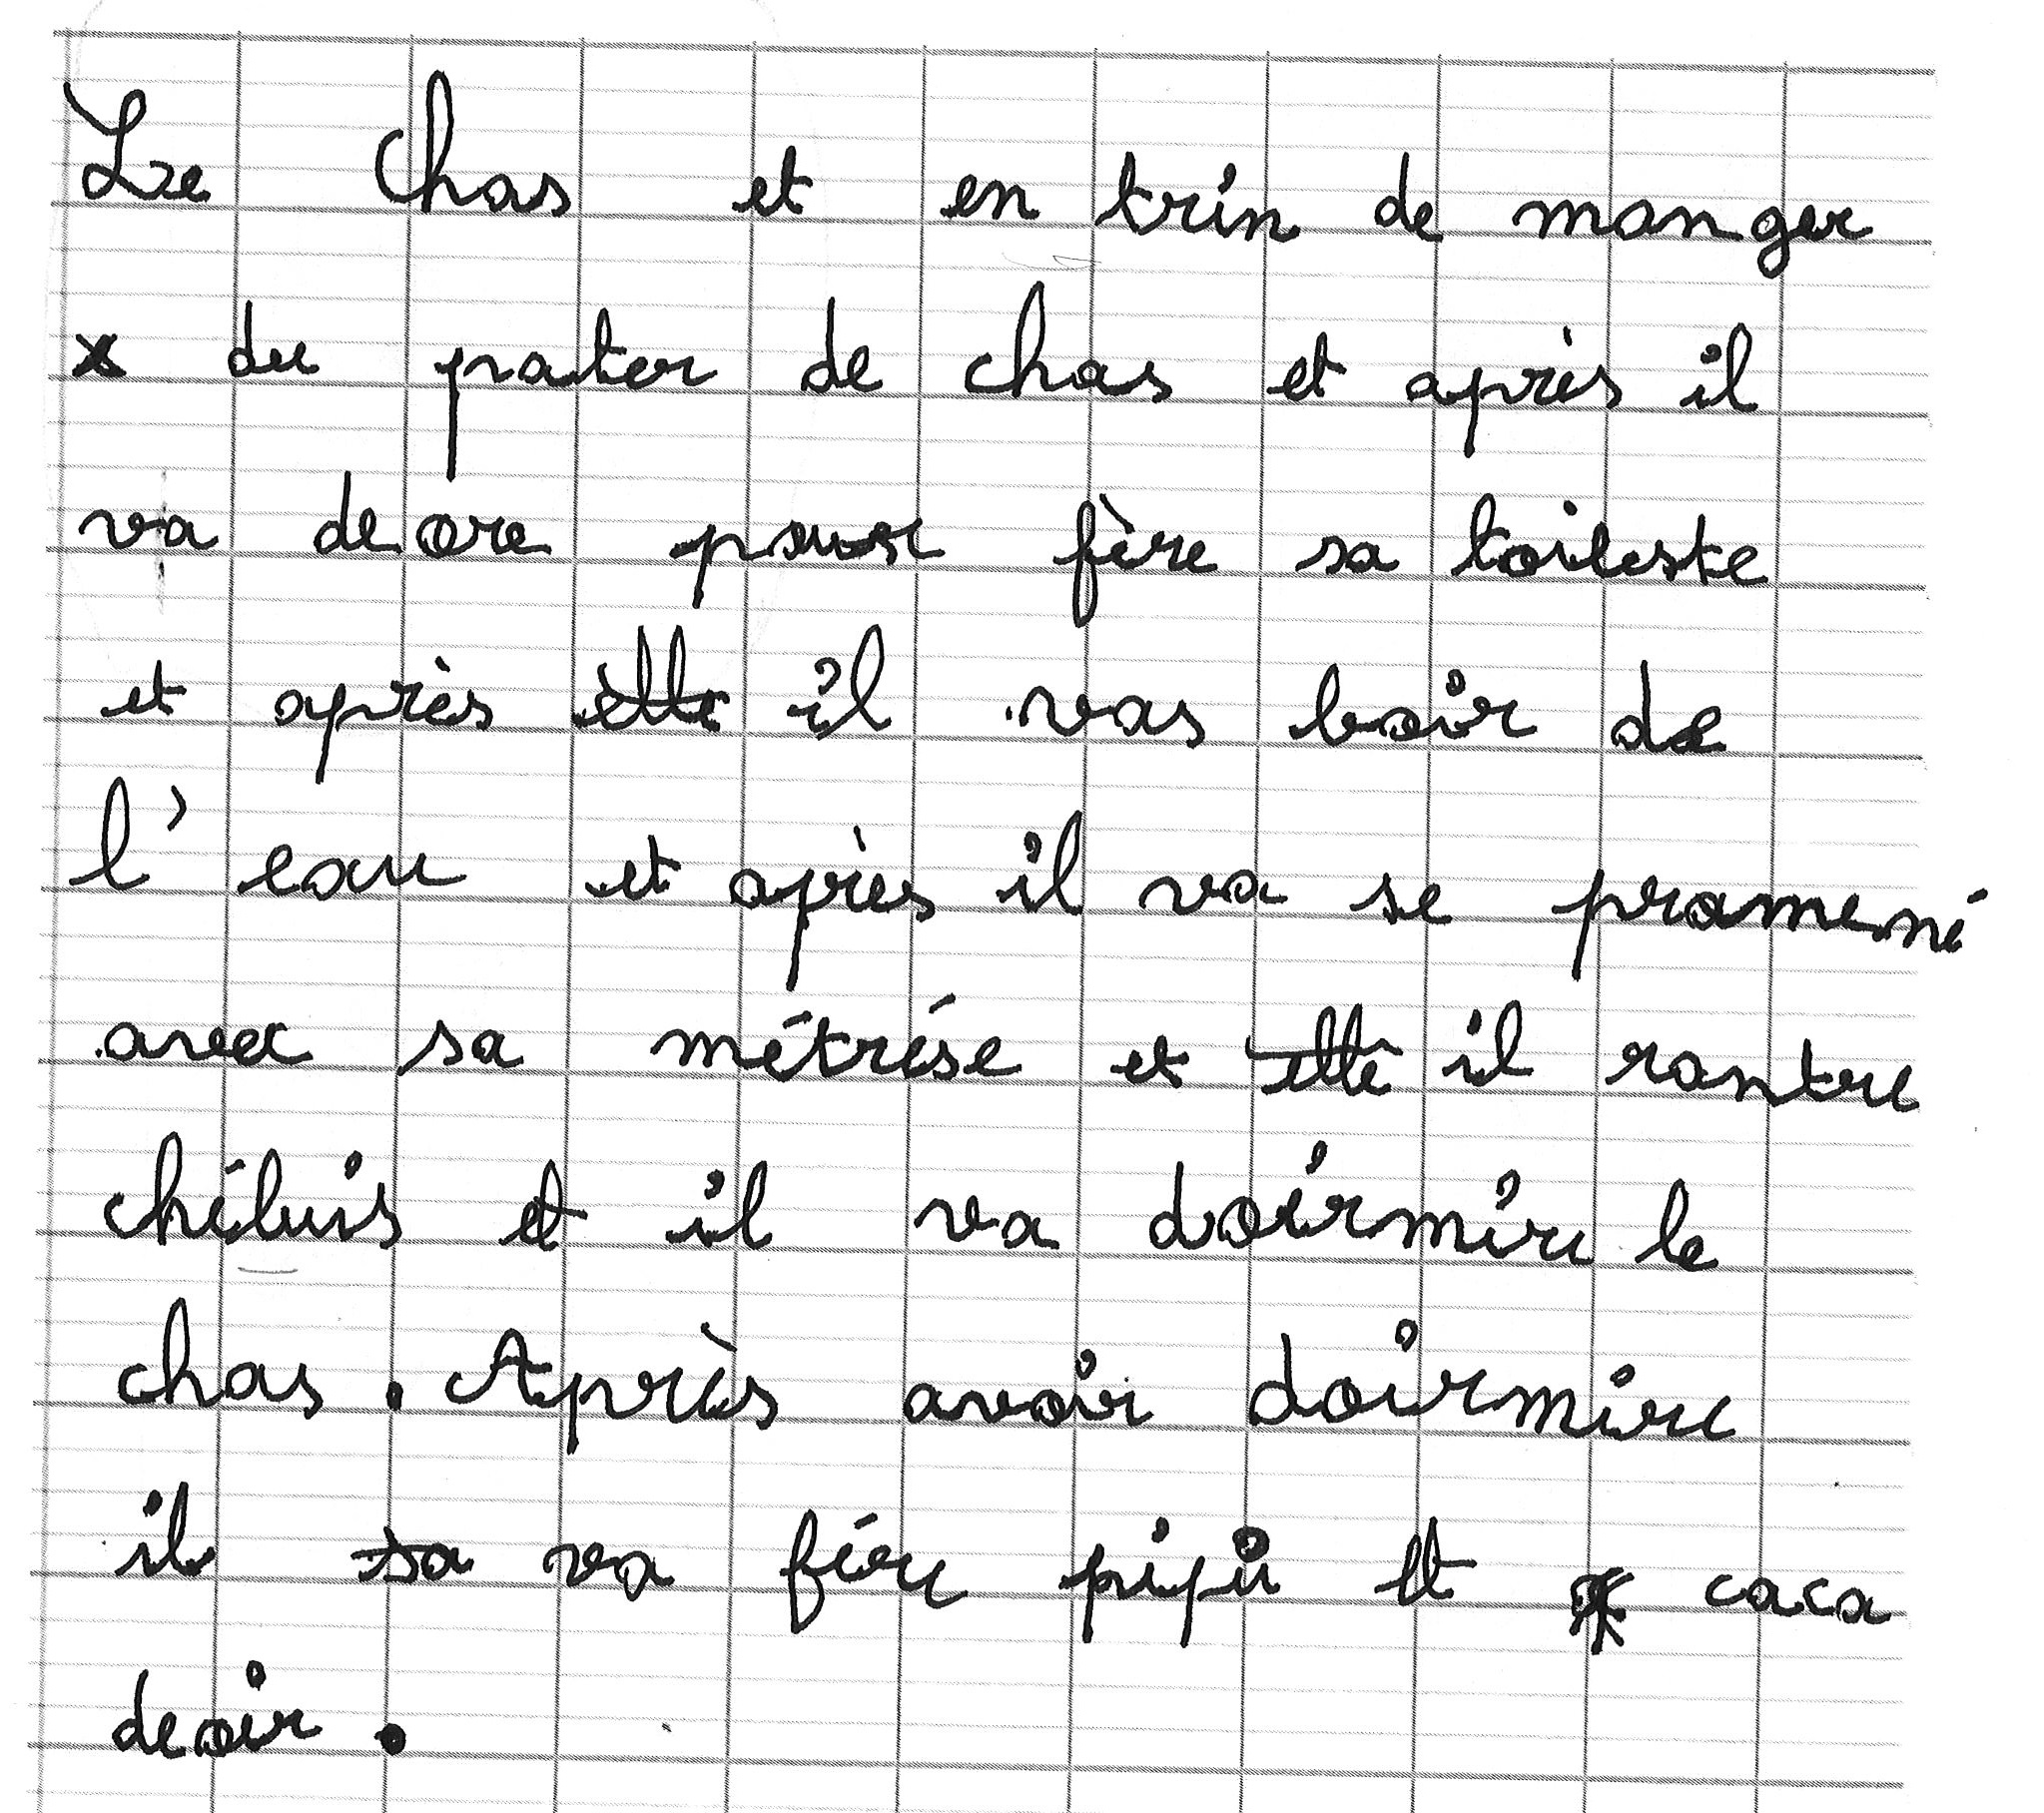 Le Chas et en trin de manger
du pater de chas et après il
va deore pour fère sa toileste
et après elle il vas boir de
l'eau et après il va se promemé
avec sa métrése et elle il rantre
chéluis et il va doirmire le
chas. Après avoir doirmire
il sa va fére pipi et caca
deoir.